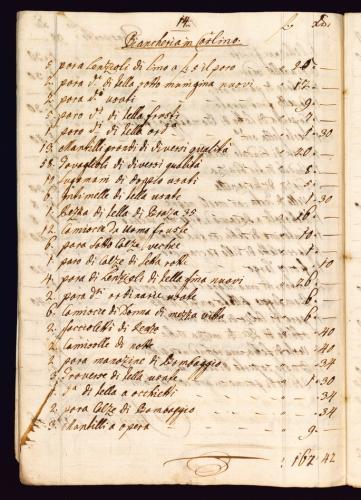 14.
Biancheria in Corlino.
5. para Lenzioli di Lino a 4 5 il paro 20 -
para d.i di tella sotto mangina nuovi 12 -
2. para d.i usati
5. para d.i di tella frusti 7 -
1. paro d.i di tella ord.a 1 - 30
13. Mantilli grandi di diversi qualità 20 -
38. Tovaglioli di diversi qualità 8 -
di doppio usati 5 -
6. Intimelle di tella usate 1 - 30
1. di tella di Braza 35 16 -
12. Camicie da Homo fruste 10 -
6. para sotto Calze vechie 1 -
1. paro di Calze di rotti
4. para di Lenzioli di tella fina nuovi 26 -
2. para d.i ordinarie usate 6 -
6. Camiscie di Donna di mezza vitta 6 -
2. facioletti di - 40
2. Camisolle di notte - 40
2. para di Bombaggio - 34
3. Traverse di tella usate 1 - 30
di tella a occhietti - 34
2. para Calze di Bombaggio - 34
3. Mantilli a opera 9 -
162 42